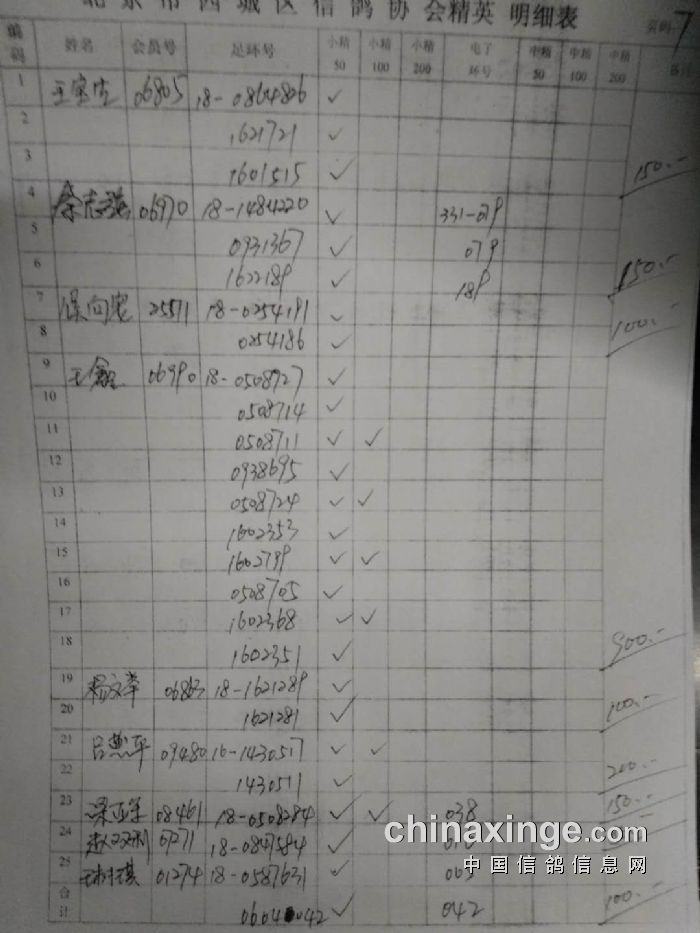 北京市西城区信鸽协会精英 明细表
页码 7
编码 姓名 会员号 足环号 小精50 小精100 小精200 电子环号 中精50 中精100 中精200 备注
1 06805 18-0864826 ✓
2 1621721 ✓
3 1601515 ✓ 150.-
4 秦志强 06970 18-1484220 ✓ 331-079
5 0931367 ✓ 079
6 1622189 ✓ 189 150.-
7 25511 18-0254191 ✓
8 0254186 ✓ 100.-
9 王鑫 06990 18-0508727 ✓
10 0508714 ✓
11 0508711 ✓ ✓
12 0938695 ✓
13 0508724 ✓ ✓
14 1602353 ✓
15 1602799 ✓ ✓
16 0508705 ✓
17 1602368 ✓ ✓
18 1602351 ✓ 900.-
19 杨文 06863 18-1621289 ✓
20 1621281 ✓ 100.-
21 吕惠平 09480 16-1430517 ✓ ✓
22 1430511 ✓ 200.-
23 08461 18-0508284 ✓ ✓ 038 150.-
24 赵双利 07271 18-0847584 ✓
25 01274 18-0587631 ✓
合计 042 ✓ 042 100.-
chinaxinge.com
中国信鸽信息网